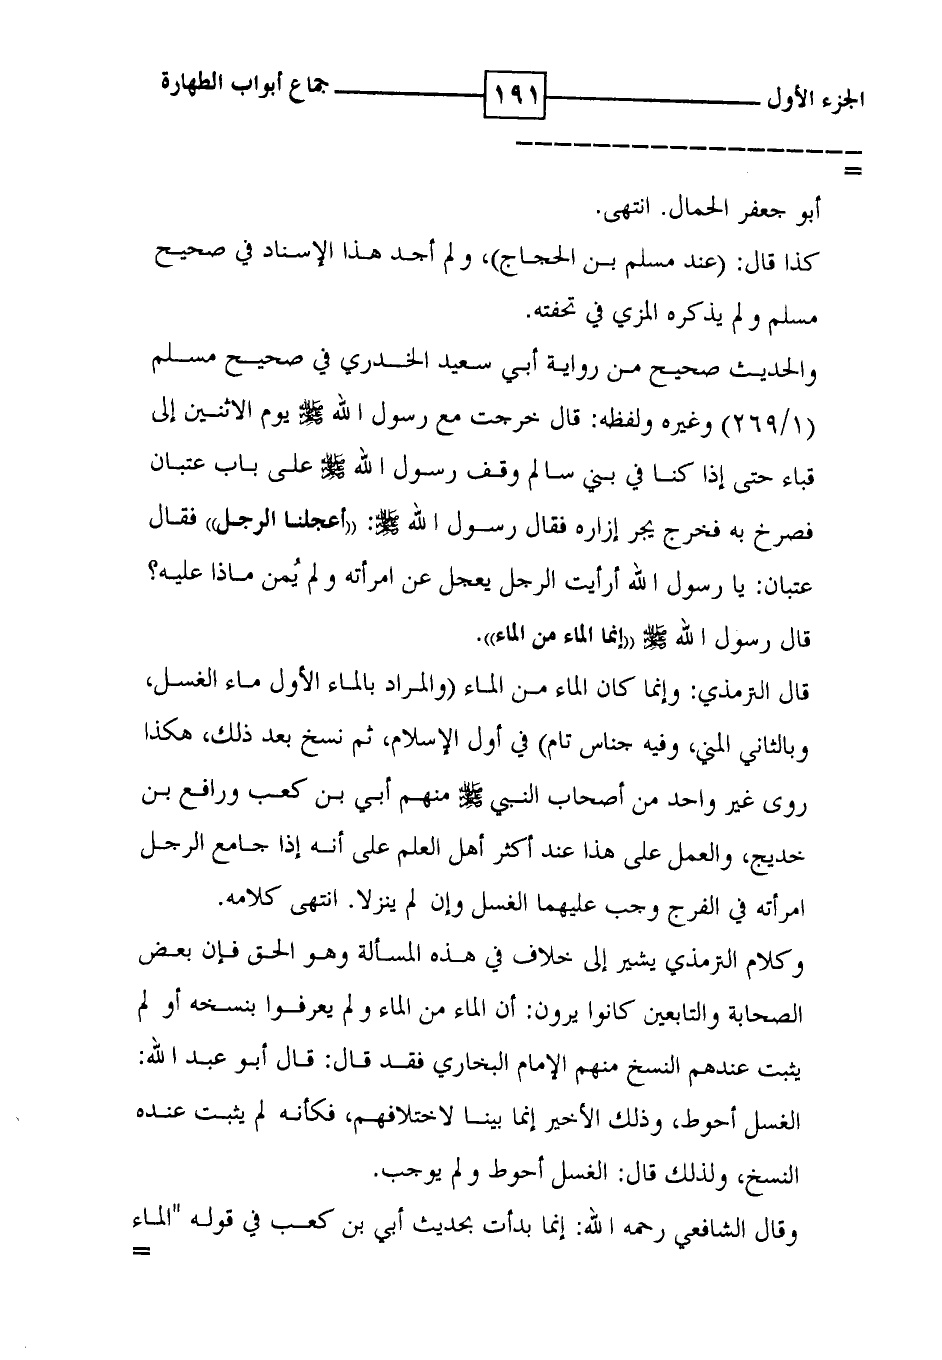 الجزء الأول ١٩١ جماع أبواب الطهارة
=
أبو جعفر الحمال. انتهى.
كذا قال: (عند مسلم بن الحجاج)، ولم أجد هذا الإسناد في صحيح
مسلم ولم يذكره المزي في تحفته.
والحديث صحيح من رواية أبي سعيد الخدري في صحيح مسلم
(٢٦٩/١) وغيره ولفظه: قال خرجت مع رسول الله ﷺ يوم الاثنين إلى
قباء حتى إذا كنا في بني سالم وقف رسول الله ﷺ على باب عتبان
فصرخ به فخرج يجر إزاره فقال رسول الله ﷺ: ((أعجلنا الرجل)) فقال
عتبان: يا رسول الله أرأيت الرجل يعجل عن امرأته ولم يُمن ماذا عليه؟
قال رسول الله ﷺ ((إنما الماء من الماء)).
قال الترمذي: وإنما كان الماء من الماء (والمراد بالماء الأول ماء الغسل،
وبالثاني المني، وفيه جناس تام) في أول الإسلام، ثم نسخ بعد ذلك، هكذا
روى غير واحد من أصحاب النبي ﷺ منهم أبي بن كعب ورافع بن
خديج، والعمل على هذا عند أكثر أهل العلم على أنه إذا جامع الرجل
امرأته في الفرج وجب عليهما الغسل وإن لم ينزلا. انتهى كلامه.
وكلام الترمذي يشير إلى خلاف في هذه المسألة وهو الحق فإن بعض
الصحابة والتابعين كانوا يرون: أن الماء من الماء ولم يعرفوا بنسخه أو لم
يثبت عندهم النسخ منهم الإمام البخاري فقد قال: قال أبو عبد الله:
الغسل أحوط، وذلك الأخير إنما بينا لاختلافهم، فكأنه لم يثبت عنده
النسخ، ولذلك قال: الغسل أحوط ولم يوجب.
وقال الشافعي رحمه الله: إنما بدأت بحديث أبي بن كعب في قوله "الماء
=